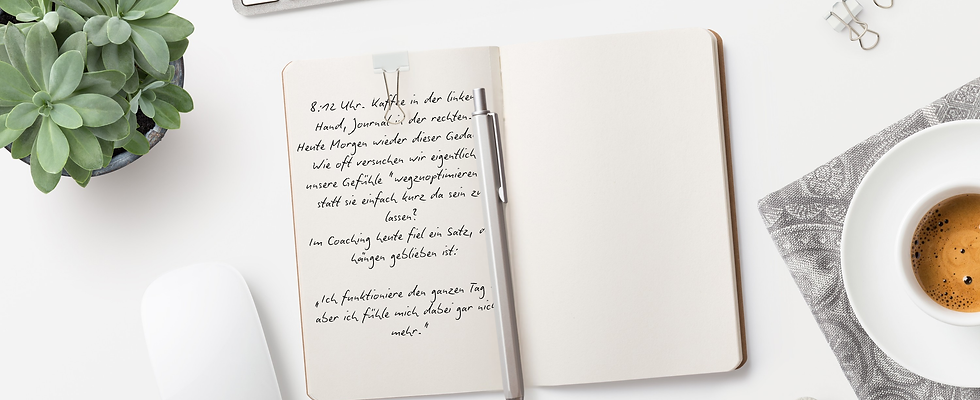 8:12 Uhr. Kaffee in der linken
Hand, Journal in der rechten.
Heute Morgen wieder dieser Geda
Wie oft versuchen wir eigentlich
unsere Gefühle "wegzuoptimieren
statt sie einfach kurz da sein zu
lassen?
Im Coaching heute fiel ein Satz,
hängen geblieben ist:
„Ich funktioniere den ganzen Tag
aber ich fühle mich dabei gar nich
mehr."